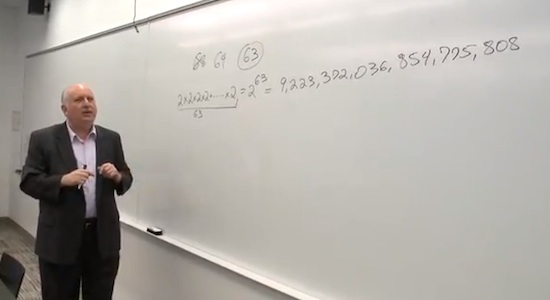 88 64 63
2×2×2×2×·····×2 = 2^63 = 9,223,372,036,854,775,808
63